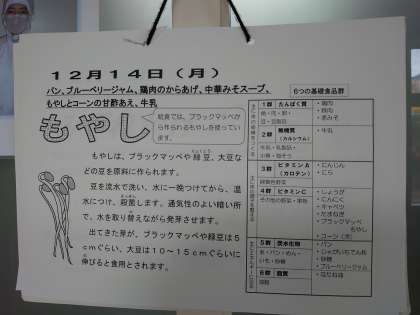 12月14日（月）
パン、ブルーベリージャム、鶏肉のからあげ、中華みそスープ、
もやしとコーンの甘酢あえ、牛乳
もやし
給食では、ブラックマッペ
から作られるもやしを使ってい
ます。
もやしは、ブラックマッペや緑豆、大豆な
どの豆を原料に作られます。
豆を流水で洗い、水に一晩つけてから、温
水につけ、殺菌します。通気性のよい暗い所
で、水を取り替えながら発芽させます。
出てきた芽が、ブラックマッペや緑豆は5
cmぐらい、大豆は10～15cmぐらいに
伸びると食用とされます。
6つの基礎食品群
1群 たんぱく質
魚・肉・卵・
豆・豆製品
・鶏肉
・豚肉
・赤みそ
2群 無機質
（カルシウム）
牛乳・乳製品・
小魚・海そう
・牛乳
3群 ビタミンA
（カロテン）
緑黄色野菜
・にんじん
・にら
4群 ビタミンC
その他の野菜・果物
・しょうが
・にんにく
・キャベツ
・たまねぎ
・ブラックマッペ
もやし
・コーン
5群 炭水化物
米・パン・めん・
いも・砂糖
・パン
・じゃがいもでん粉
・砂糖
・ブルーベリージャム
6群 脂質
油脂